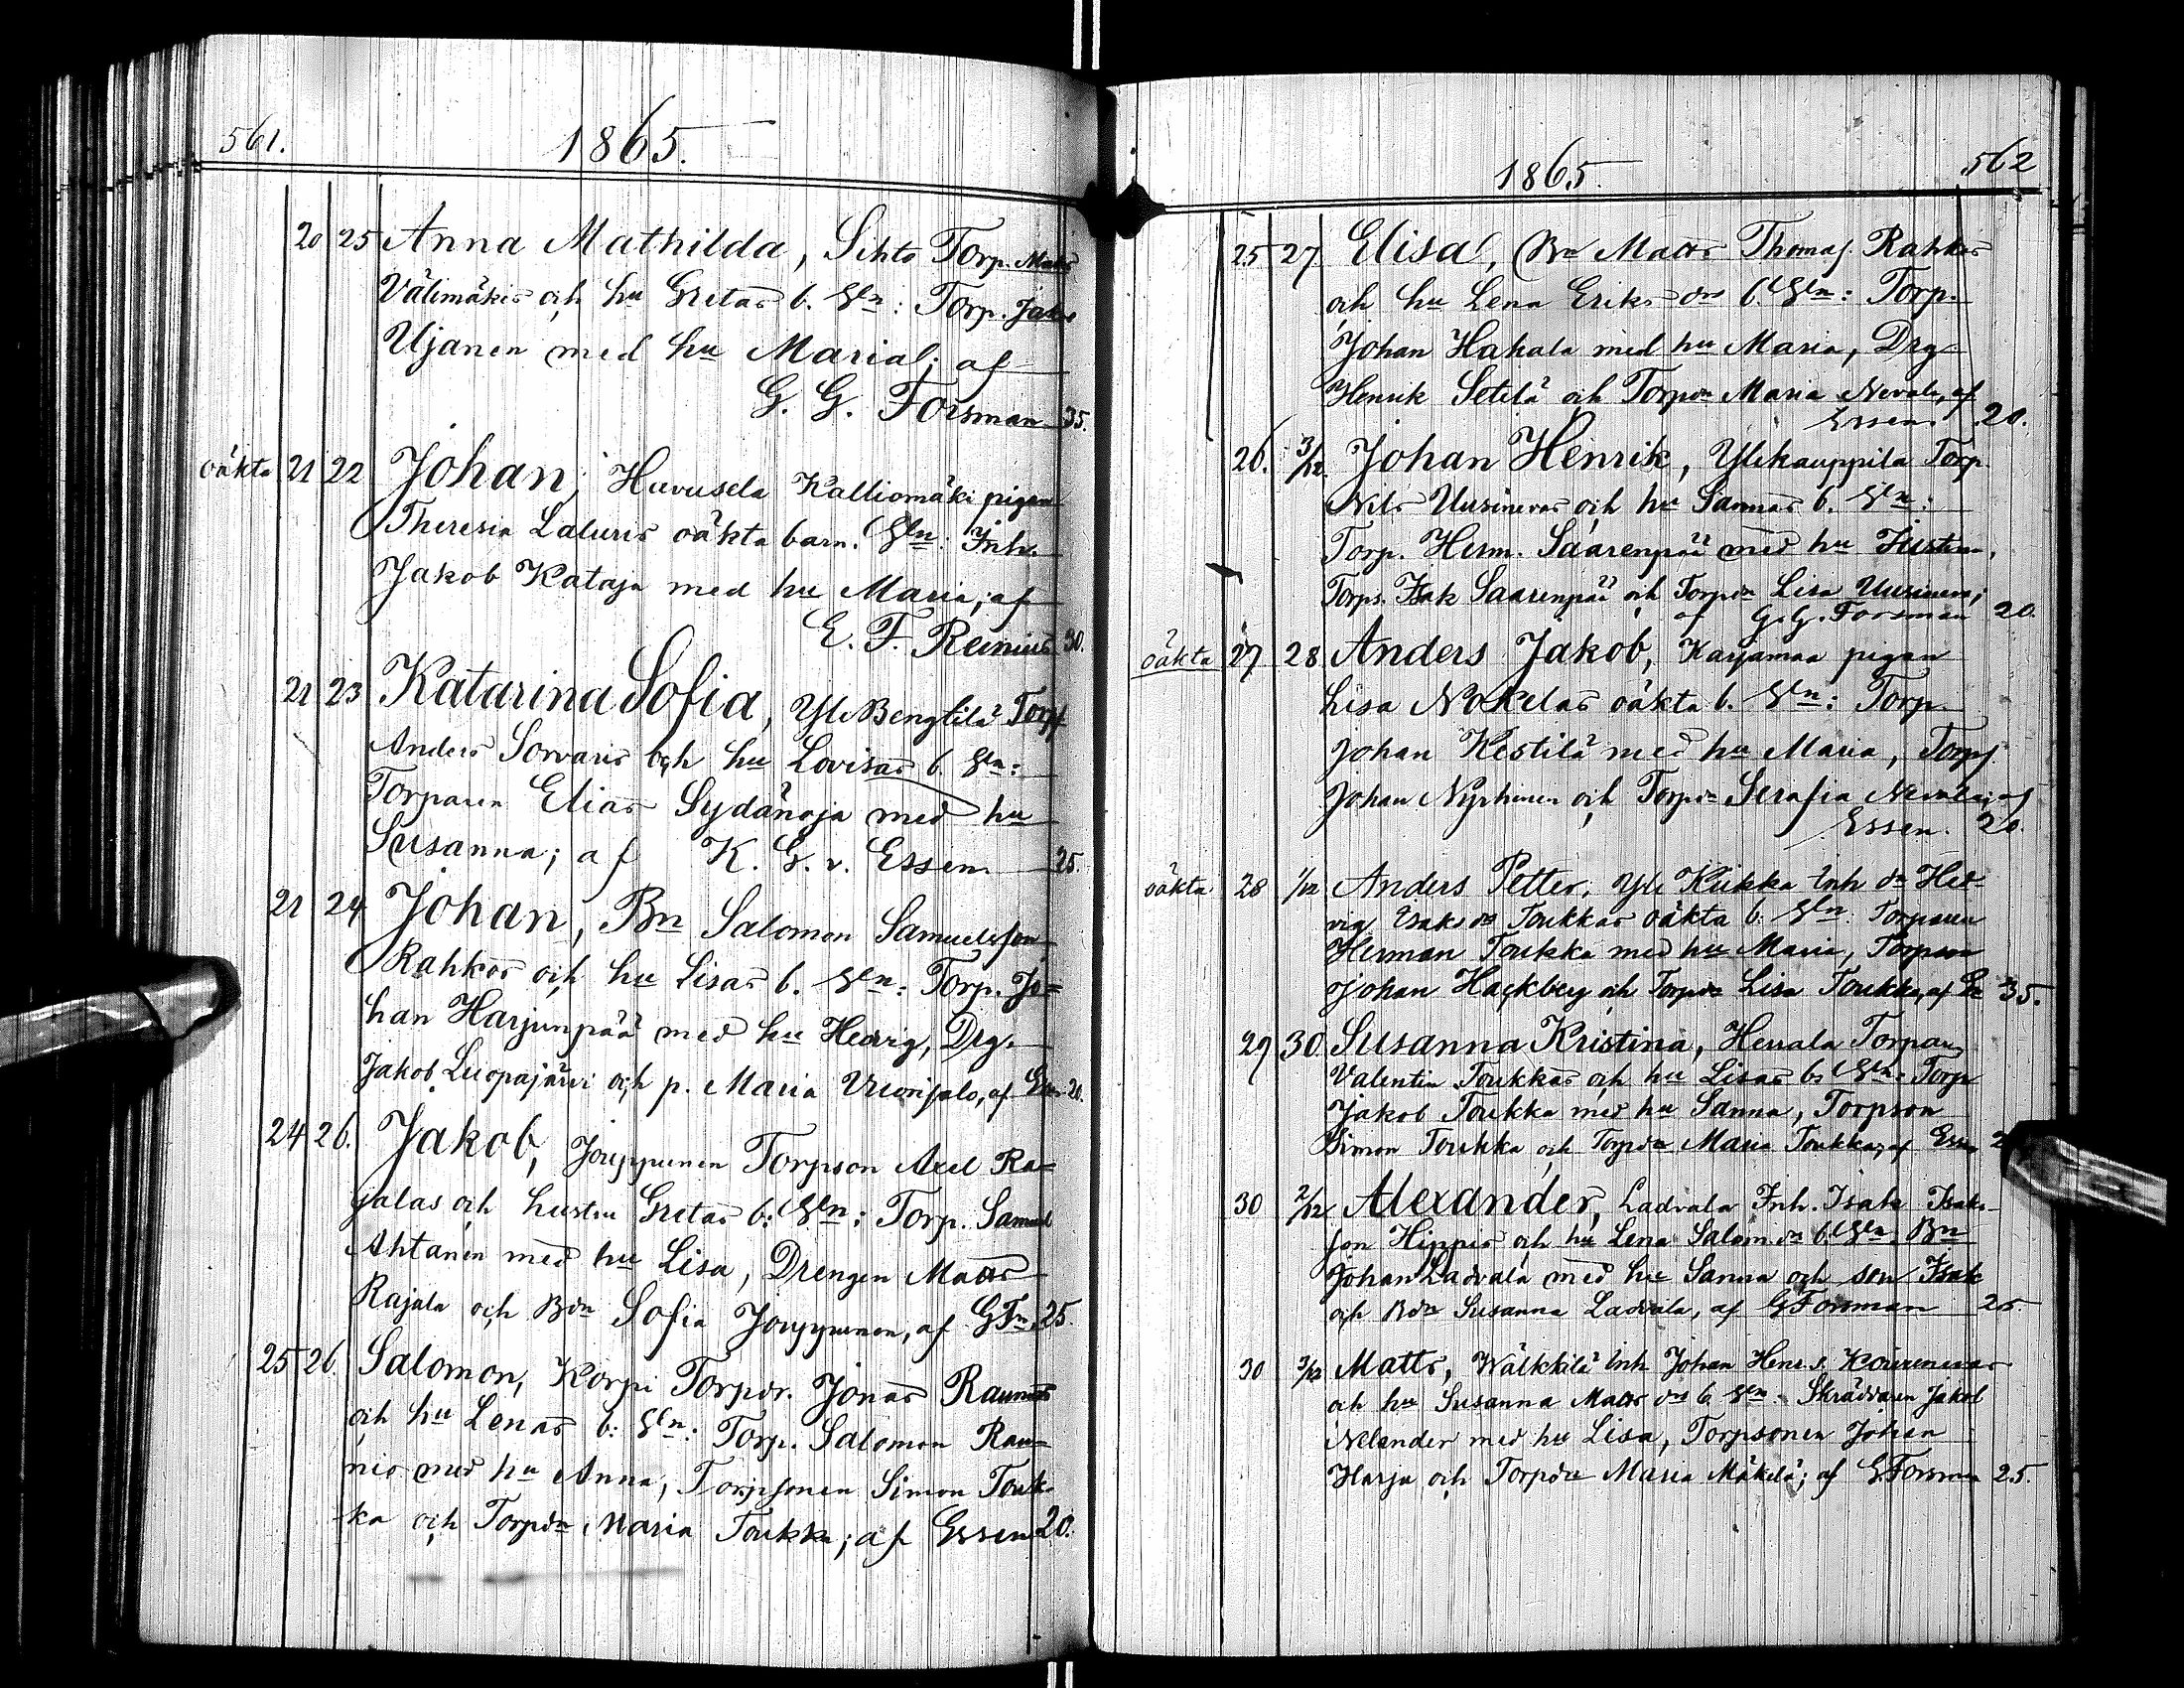 561.
1865.
20 25 Anna Mathilda, Sihto Torp. Matts
Välimäkis och hu Gretas b. Sln: Torp. Jakob
Ujanen med hu Maria; af
G. G. Forsman 35.
oäkta 21 22 Johan, Huvusela Kalliomäki pigan
Theresia Laluris oäkta barn. Sln: Inh.
Jakob Kataja med hu Maria; af
E. F. Reinius 30.
21 23 Katarina Sofia, Yli Bengtilä Torp
Anders Sorvaris och hu Lovisas b. Sln:
Torparen Elias Sydänoja med hu
Susanna; af K. G. v. Essen 25.
21 24 Johan, Bn Salomon Samuelsson
Rahkos och hu Lisas b. Sln: Torp. Jo=
han Harjunpää med hu Hedvig, Drg.
Jakob Luopajärvi och p. Maria Vuorisalo, af Ess. 20.
24 26. Jakob, Jouppinen Torpson Axel Ra=
jalas och hustru Gretas b: Sln: Torp. Samuel
Ahtanen med hu Lisa, Drengen Matts
Rajala och Bdn Sofia Jouppinen, af GFn. 25.
25 26. Salomon, Korpi Torpdr. Jonas Raunios
och hu Lenas b: Sln: Torp. Salomon Rau=
nio med hu Anna, Torpsonen Simon Touk-
ka och Torpdn Maria Toukka; af Essen 20.
1865.
562
25 27 Elisa, Bn Matts Thomas. Rahkos
och hu Lena Eriks drs b. Sln: Torp.
Johan Hakala med hu Maria, Drg
Henrik Setilä och Torpdn Maria Nevala, af
Essen. 20.
26. 3/12 Johan Henrik, Ylikauppila Torp.
Nils Uusinevas och hu Sannas b. Sln:
Torp. Herm. Saarenpää med hu Justina,
Torps. Isak Saarenpää och Torpdn Lisa Uusineva;
af G. G. Forsman 20.
oäkta 27 28 Anders Jakob, Karjamaa pigan
Lisa Nokelas oäkta b. Sln: Torp.
Johan Kestilä med hu Maria, Torps.
Johan Nyrhinen och Torpdn Serafia Nevala; af
Essen. 20.
oäkta 28 1/12 Anders Petter, Yli Kiikka Inh dn Hed-
vig Isaks dr Toukkas oäkta b. Sln: Torparen
Herman Toukka med hu Maria, Torpson
Johan Hackberg och Torpdn Lisa Toukka, af 35.
29 30. Susanna Kristina, Herrala Torparen
Valentin Toukkas och hu Lisas b. Sln: Torp
Jakob Toukka med hu Sanna, Torpson
Simon Toukka och Torpdn Maria Toukka, af Essen
30 2/12 Alexander, Ladvala Inh. Isak Isaks-
son Hippis och hu Lena Salom. dr b. Sln. Bn
Johan Ladvala med hu Sanna och son Isak
och Bdn Susanna Ladvala, af GForsman 25.
30 3/12 Matts, Wälkkilä Inh Johan Henr. s. Kourunevas
och hu Susanna Matts drs b. Sln. Skräddaren Jakob
Nelander med hu Lisa, Torpsonen Johan
Harja och Torpdn Maria Mäkelä; af GForsman 25.